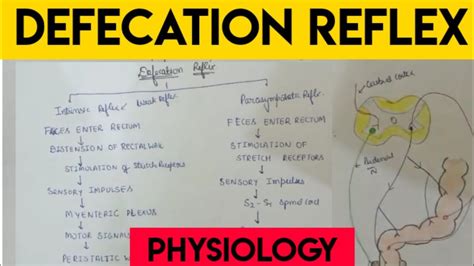 DEFECATION REFLEX
Defecation Reflex
Intrinsic Reflex Weak Reflex
FECES ENTER RECTUM
DISTENSION OF RECTAL WALL
STIMULATION OF Stretch Receptors
SENSORY IMPULSES
MYENTERIC PLEXUS
MOTOR SIGNALS
PERISTALTIC W
Parasympathetic Reflex
FECES ENTER RECTUM
STIMULATION OF
STRETCH RECEPTORS
SENSORY Impulses
Spinal cord
Cerebral cortex
Pudendal
N
PHYSIOLOGY